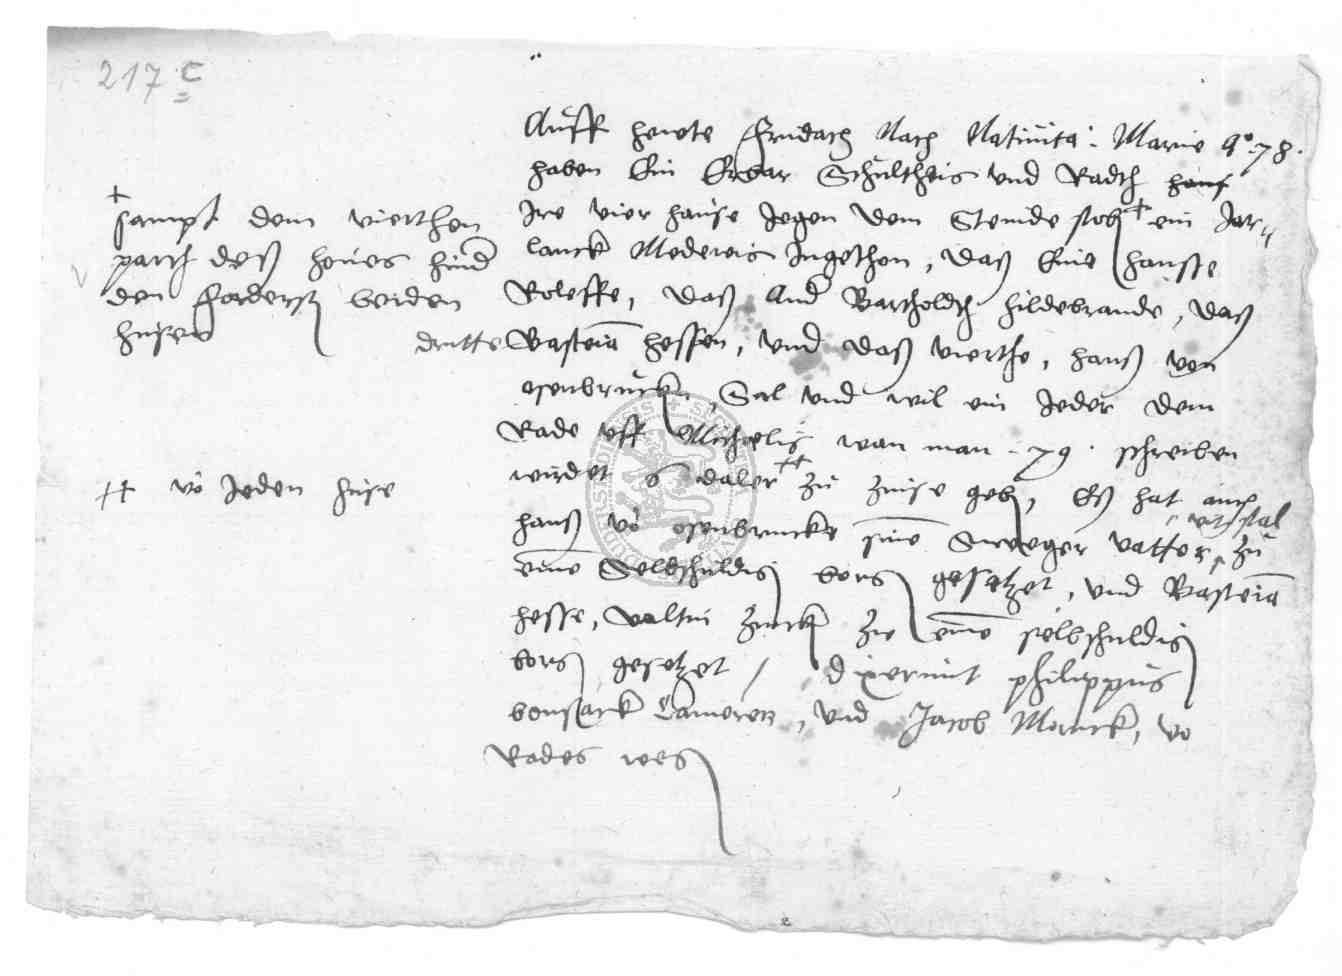 217 c
Auff heutte Fridach Nach Natiuita. Marie aº. 78.
haben Ein Erbar Schultheis vnd Radth hans
Ire vier hause Jegen dem Steinde + ein Jar
lanck Mederis Ingethon, daß Eine hansse
Roleffe, daß And Bartholdth hildebrande, daß
dritte Bastein hessen, vnd daß vierthe, hanß von
osenbruck, Sal vnd wil ein Jeder dem
Rade vff Michelis wan man . 79 . schreiben
wirdet 6 daler ++ zu zinse geb, Eß hat auch
hanß vo osenbrucke sine Sweger vatter zu
eine Selbschuldig borg gesetzet, vnd Bastein
hesse, valtin zinck zu eine selbschuldig
borg gesetzet / dixerunt philippus
bonsack Camerer, vnd Jacob Morick, vo
Rades weg
+
sampt dem vierthen
parth deß houes hind
den forderst beiden
husern
++ vo Jeden huse